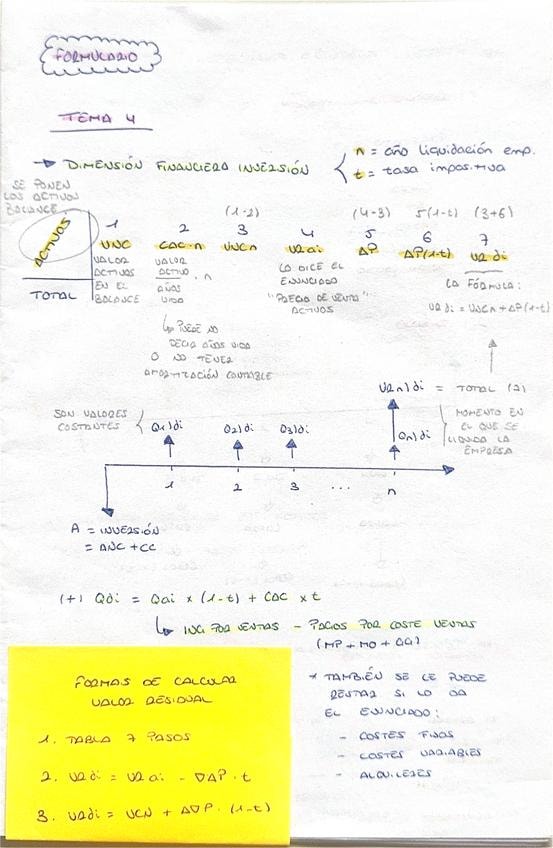 FORMULARIO
TEMA 4
→ DIMENSIÓN FINANCIERA INVERSIÓN
n = año liquidación emp.
t = tasa impositiva
SE PONEN
LOS ACTIVOS
BALANCE
ACTIVOS
TOTAL
(1-2) (4-3) 5(1-t) (3+6)
1 2 3 4 5 6 7
VNC CAC·n VNCn VRai ΔP ΔP(1-t) VRdi
VALOR
ACTIVOS
EN EL
BALANCE
VALOR
ACTIVO
AÑOS
VIDA
· n
↳ PUEDE NO
DECIR AÑOS VIDA
O NO TENER
AMORTIZACIÓN CONTABLE
LO DICE EL
ENUNCIADO
"PRECIO DE VENTA"
ACTIVOS
LA FÓRMULA:
VRdi = VNCn + ΔP(1-t)
VRn)di = TOTAL (7)
SON VALORES
COSTANTES
Q1)di Q2)di Q3)di Qn)di
MOMENTO EN
EL QUE SE
LIQUIDA LA
EMPRESA
1 2 3 ... n
A = INVERSIÓN
= ANC + CC
(+) Qdi = Qai x (1-t) + CAC x t
↳ ING POR VENTAS - PAGOS POR COSTE VENTAS
(MP + MO + GG)
FORMAS DE CALCULAR
VALOR RESIDUAL
1. TABLA 7 PASOS
2. VRdi = VRai - ∇ΔP · t
3. VRdi = VCN + Δ∇P · (1-t)
* TAMBIÉN SE LE PUEDE
RESTAR SI LO DA
EL ENUNCIADO:
- COSTES FIJOS
- COSTES VARIABLES
- ALQUILERES